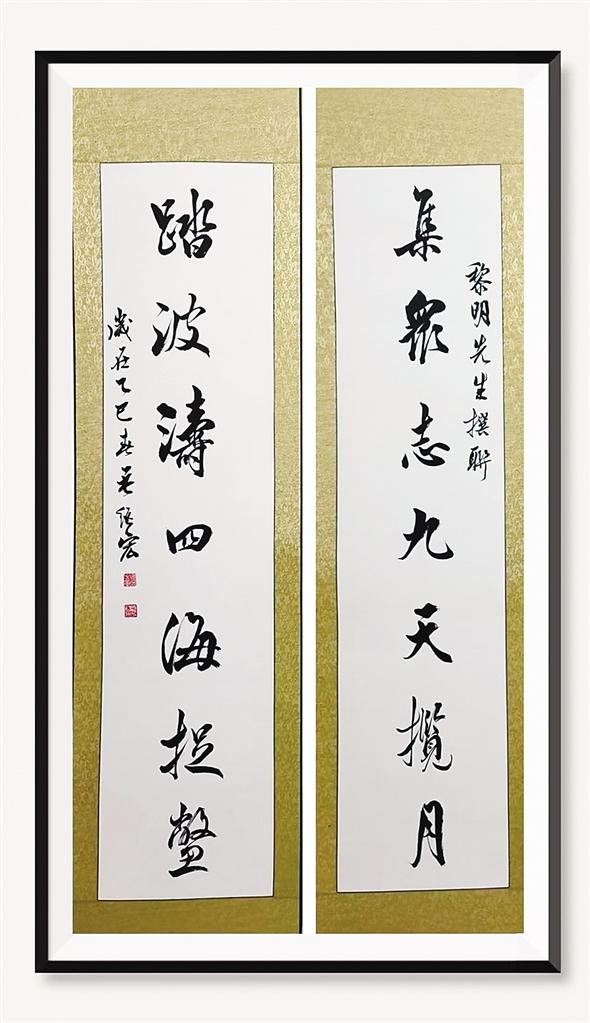 黎明先生撰聯
集眾志九天攬月
踏波濤四海捉鱉
歲在乙巳春吴宏